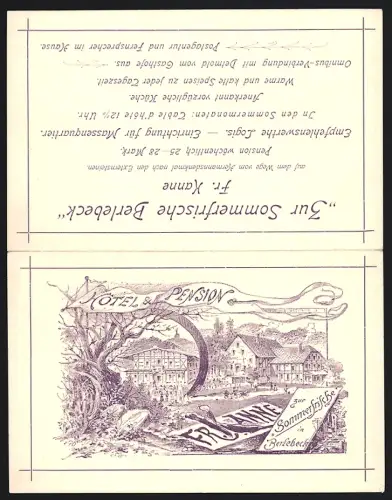 „Zur Sommerfrische Berlebeck"
Fr. Kanne
auf dem Wege vom Hermannsdenkmal nach den Externsteinen.
Pension wöchentlich 25–28 Mark.
Empfehlenswerthe Logis. — Einrichtung für Massenquartier.
In den Sommermonaten: Table d'hôte 12½ Uhr.
Anerkannt vorzügliche Küche.
Warme und kalte Speisen zu jeder Tageszeit.
Omnibus-Verbindung mit Detmold vom Gasthofe aus.
Postagentur und Fernsprecher im Hause.
HÔTEL & PENSION
FR. KANNE
Zur
Sommerfrische
in
Berlebeck